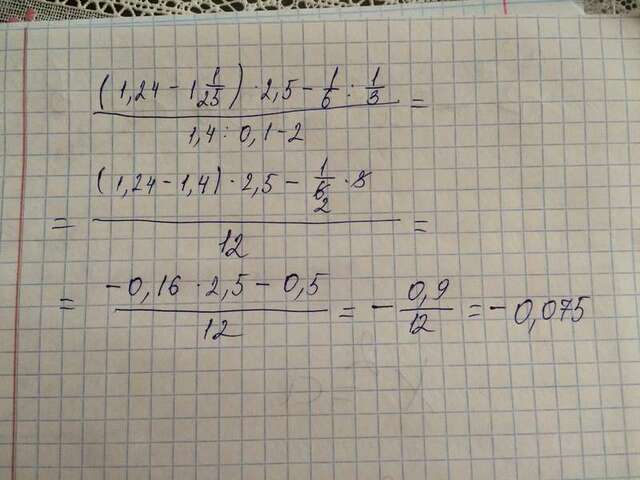 (1,24 - 1 1/25) · 2,5 - 1/6 : 1/3 =
1,4 : 0,1 - 2
= (1,24 - 1,4) · 2,5 - 1/6 · 3 =
2
12
= -0,16 · 2,5 - 0,5 = - 0,9/12 = -0,075
12